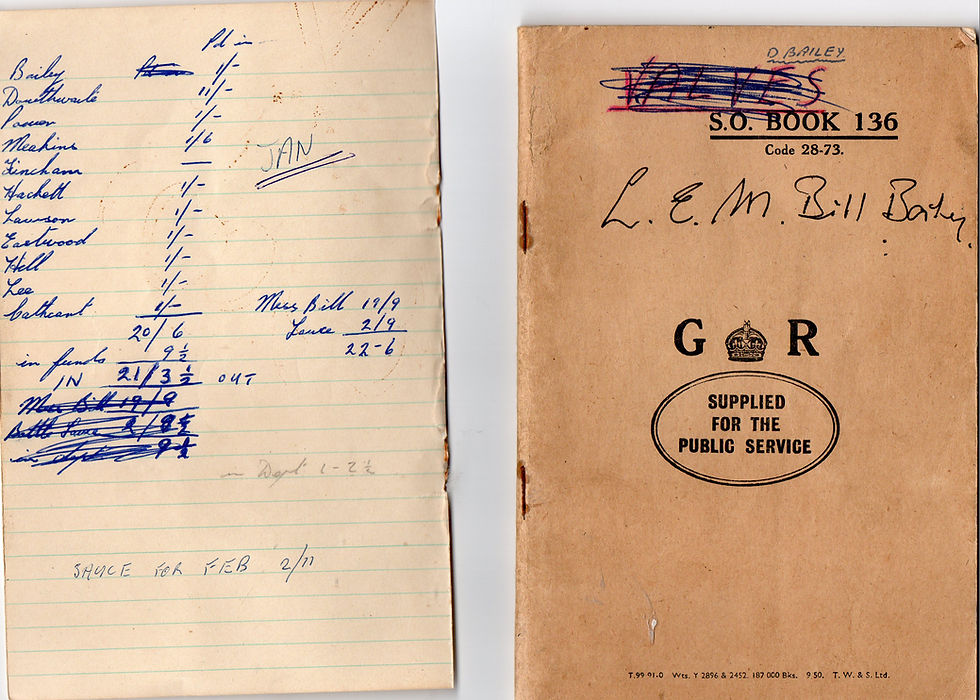 Pd in
Bailey 1/-
Douthwaite 11/-
1/-
Meakins 1/6
Fincham —
Hackett 1/-
Lawson 1/-
Eastwood 1/-
Hill 1/-
Lee 1/-
Cathcart 1/-
20/6
in funds 9½
IN 21/3½ OUT
Mess Bill 19/9
Bottle Sauce
9½
JAN
Mess Bill 19/9
Sauce 2/9
22-6
in Dept 1-2½
SAUCE FOR FEB 2/11
D BAILEY
VALVES
S.O. BOOK 136
Code 28-73.
L. E. M. Bill Bailey.
G R
SUPPLIED
FOR THE
PUBLIC SERVICE
T.99 01.0 Wts. Y 2896 & 2452. 187 000 Bks. 9 50. T. W. & S. Ltd.